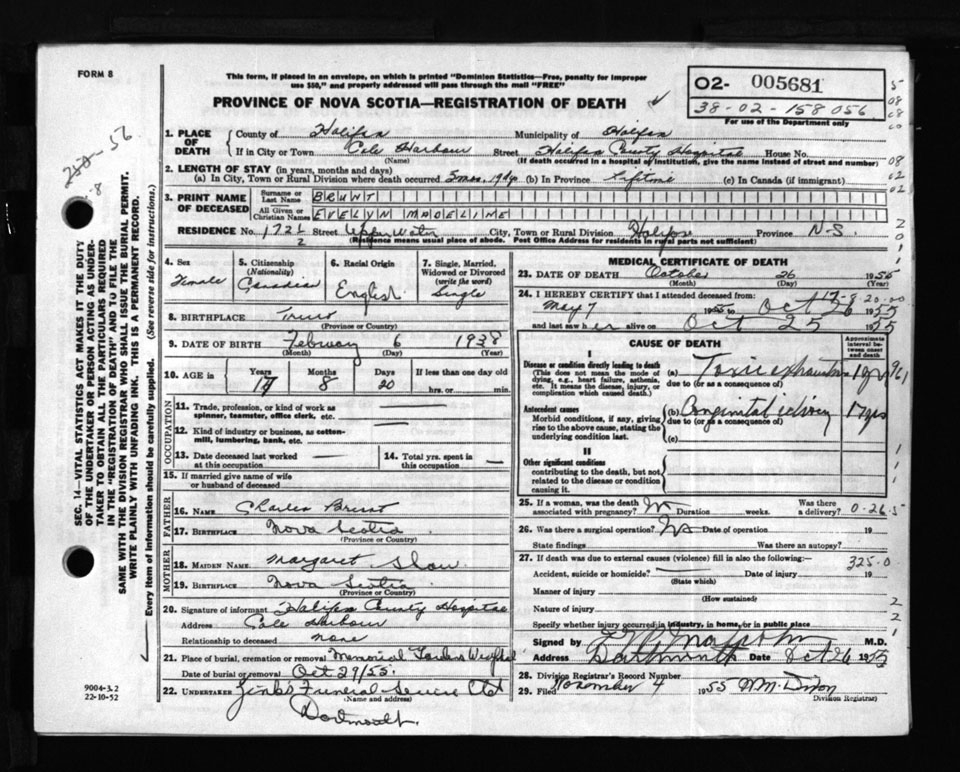 FORM 8
This form, if placed in an envelope, on which is printed "Dominion Statistics—Free, penalty for improper
use $50," and properly addressed will pass through the mail "FREE"
PROVINCE OF NOVA SCOTIA—REGISTRATION OF DEATH
02- 005681
38-02-158 056
For use of the Department only
1. PLACE OF DEATH
County of Halifax Municipality of Halifax
If in City or Town Cole Harbour Street Halifax County Hospital House No.
(Name) (If death occurred in a hospital or institution, give the name instead of street and number)
2. LENGTH OF STAY (in years, months and days)
(a) In City, Town or Rural Division where death occurred 5 mos, 19 dys (b) In Province Lifetime (c) In Canada (if immigrant)
3. PRINT NAME OF DECEASED
Surname or Last Name BRUNT
All Given or Christian Names EVELYN MADELINE
RESIDENCE No. 172 1/2 Street Upper Water City, Town or Rural Division Halifax Province N-S
(Residence means usual place of abode. Post Office Address for residents in rural parts not sufficient)
4. Sex Female
5. Citizenship (Nationality) Canadian
6. Racial Origin English
7. Single, Married, Widowed or Divorced (write the word) Single
8. BIRTHPLACE Truro
(Province or Country)
9. DATE OF BIRTH February 6 1938
(Month) (Day) (Year)
10. AGE in Years 17 Months 8 Days 20 If less than one day
hrs. or min.
OCCUPATION
11. Trade, profession, or kind of work as spinner, teamster, office clerk, etc. —
12. Kind of industry or business, as cotton-mill, lumbering, bank, etc.
13. Date deceased last worked at this occupation —
14. Total yrs. spent in this occupation —
15. If married give name of wife or husband of deceased
FATHER
16. Name Charles Brunt
17. Birthplace Nova Scotia
(Province or Country)
MOTHER
18. Maiden Name Margaret
19. Birthplace Nova Scotia
(Province or Country)
20. Signature of informant Halifax County Hospital
Address Cole Harbour
Relationship to deceased none
21. Place of burial, cremation or removal Memorial Gardens
Date of burial or removal Oct 29/55
22. Undertaker Funeral Service Ltd
(Name and address)
Dartmouth
MEDICAL CERTIFICATE OF DEATH
23. DATE OF DEATH October 26 1955
(Month) (Day) (Year)
24. I HEREBY CERTIFY that I attended deceased from:
17-8-20-00
May 7 1955 to Oct 26 1955
and last saw her alive on Oct 25 1955
CAUSE OF DEATH
Approximate interval between onset and death
I
Disease or condition directly leading to death
(This does not mean the mode of dying, e.g., heart failure, asthenia, etc. It means the disease, injury, or complication which caused death.)
(a) Toxic exhaustion
due to (or as a consequence of)
961
Antecedent causes
Morbid conditions, if any, giving rise to the above cause, stating the underlying condition last.
(b) Congenital idiocy 17 yrs
due to (or as a consequence of)
(c)
II
Other significant conditions
contributing to the death, but not related to the disease or condition causing it.
25. If a woman, was the death associated with pregnancy? No Duration weeks. Was there a delivery? 0-26-5
26. Was there a surgical operation? No Date of operation 19
State findings Was there an autopsy?
27. If death was due to external causes (violence) fill in also the following:
325.0
Accident, suicide or homicide? Date of injury 19
(State which)
Manner of injury
(How sustained)
Nature of injury
Specify whether injury occurred in industry, in home, or in public place
Signed by M.D.
Address Dartmouth Date Oct 26 1955
28. Division Registrar's Record Number
29. Filed November 4 1955 W.M. Dixon
Division Registrar)
SEC. 14—VITAL STATISTICS ACT MAKES IT THE DUTY
OF THE UNDERTAKER OR PERSON ACTING AS UNDERTAKER
TO OBTAIN ALL THE PARTICULARS REQUIRED
IN THE "REGISTRATION OF DEATH" AND TO FILE THE
SAME WITH THE DIVISION REGISTRAR WHO SHALL ISSUE THE BURIAL PERMIT.
WRITE PLAINLY WITH UNFADING INK. THIS IS A PERMANENT RECORD.
Every item of information should be carefully supplied. (See reverse side for instructions.)
9004-3.2
22-10-52